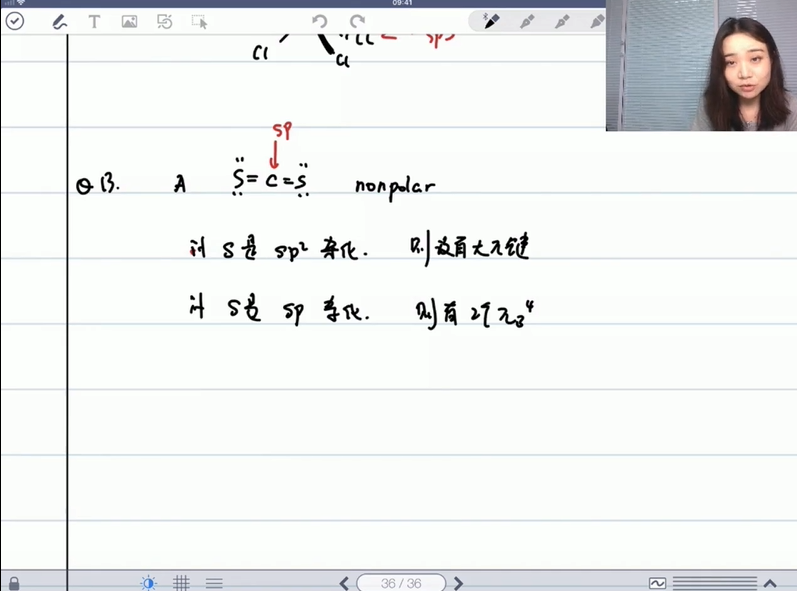 09:41
T
Cl
Cl
sp3
sp
Q13. A S=C=S nonpolar
讨 S是 sp² 杂化. 则没有大π键
讨 S是 sp 杂化. 则有2个π₃⁴
36 / 36